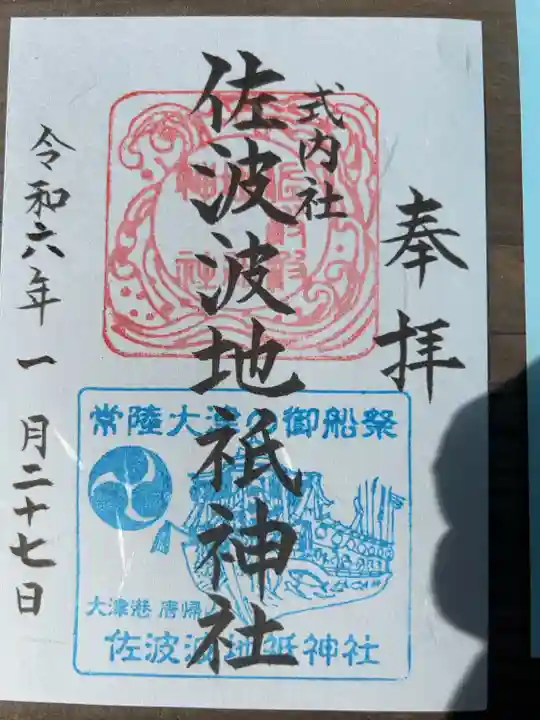 奉拝
式内社
佐波波地祇神社
令和六年一月二十七日
常陸大津の御船祭
大津港 唐帰
佐波波地祇神社